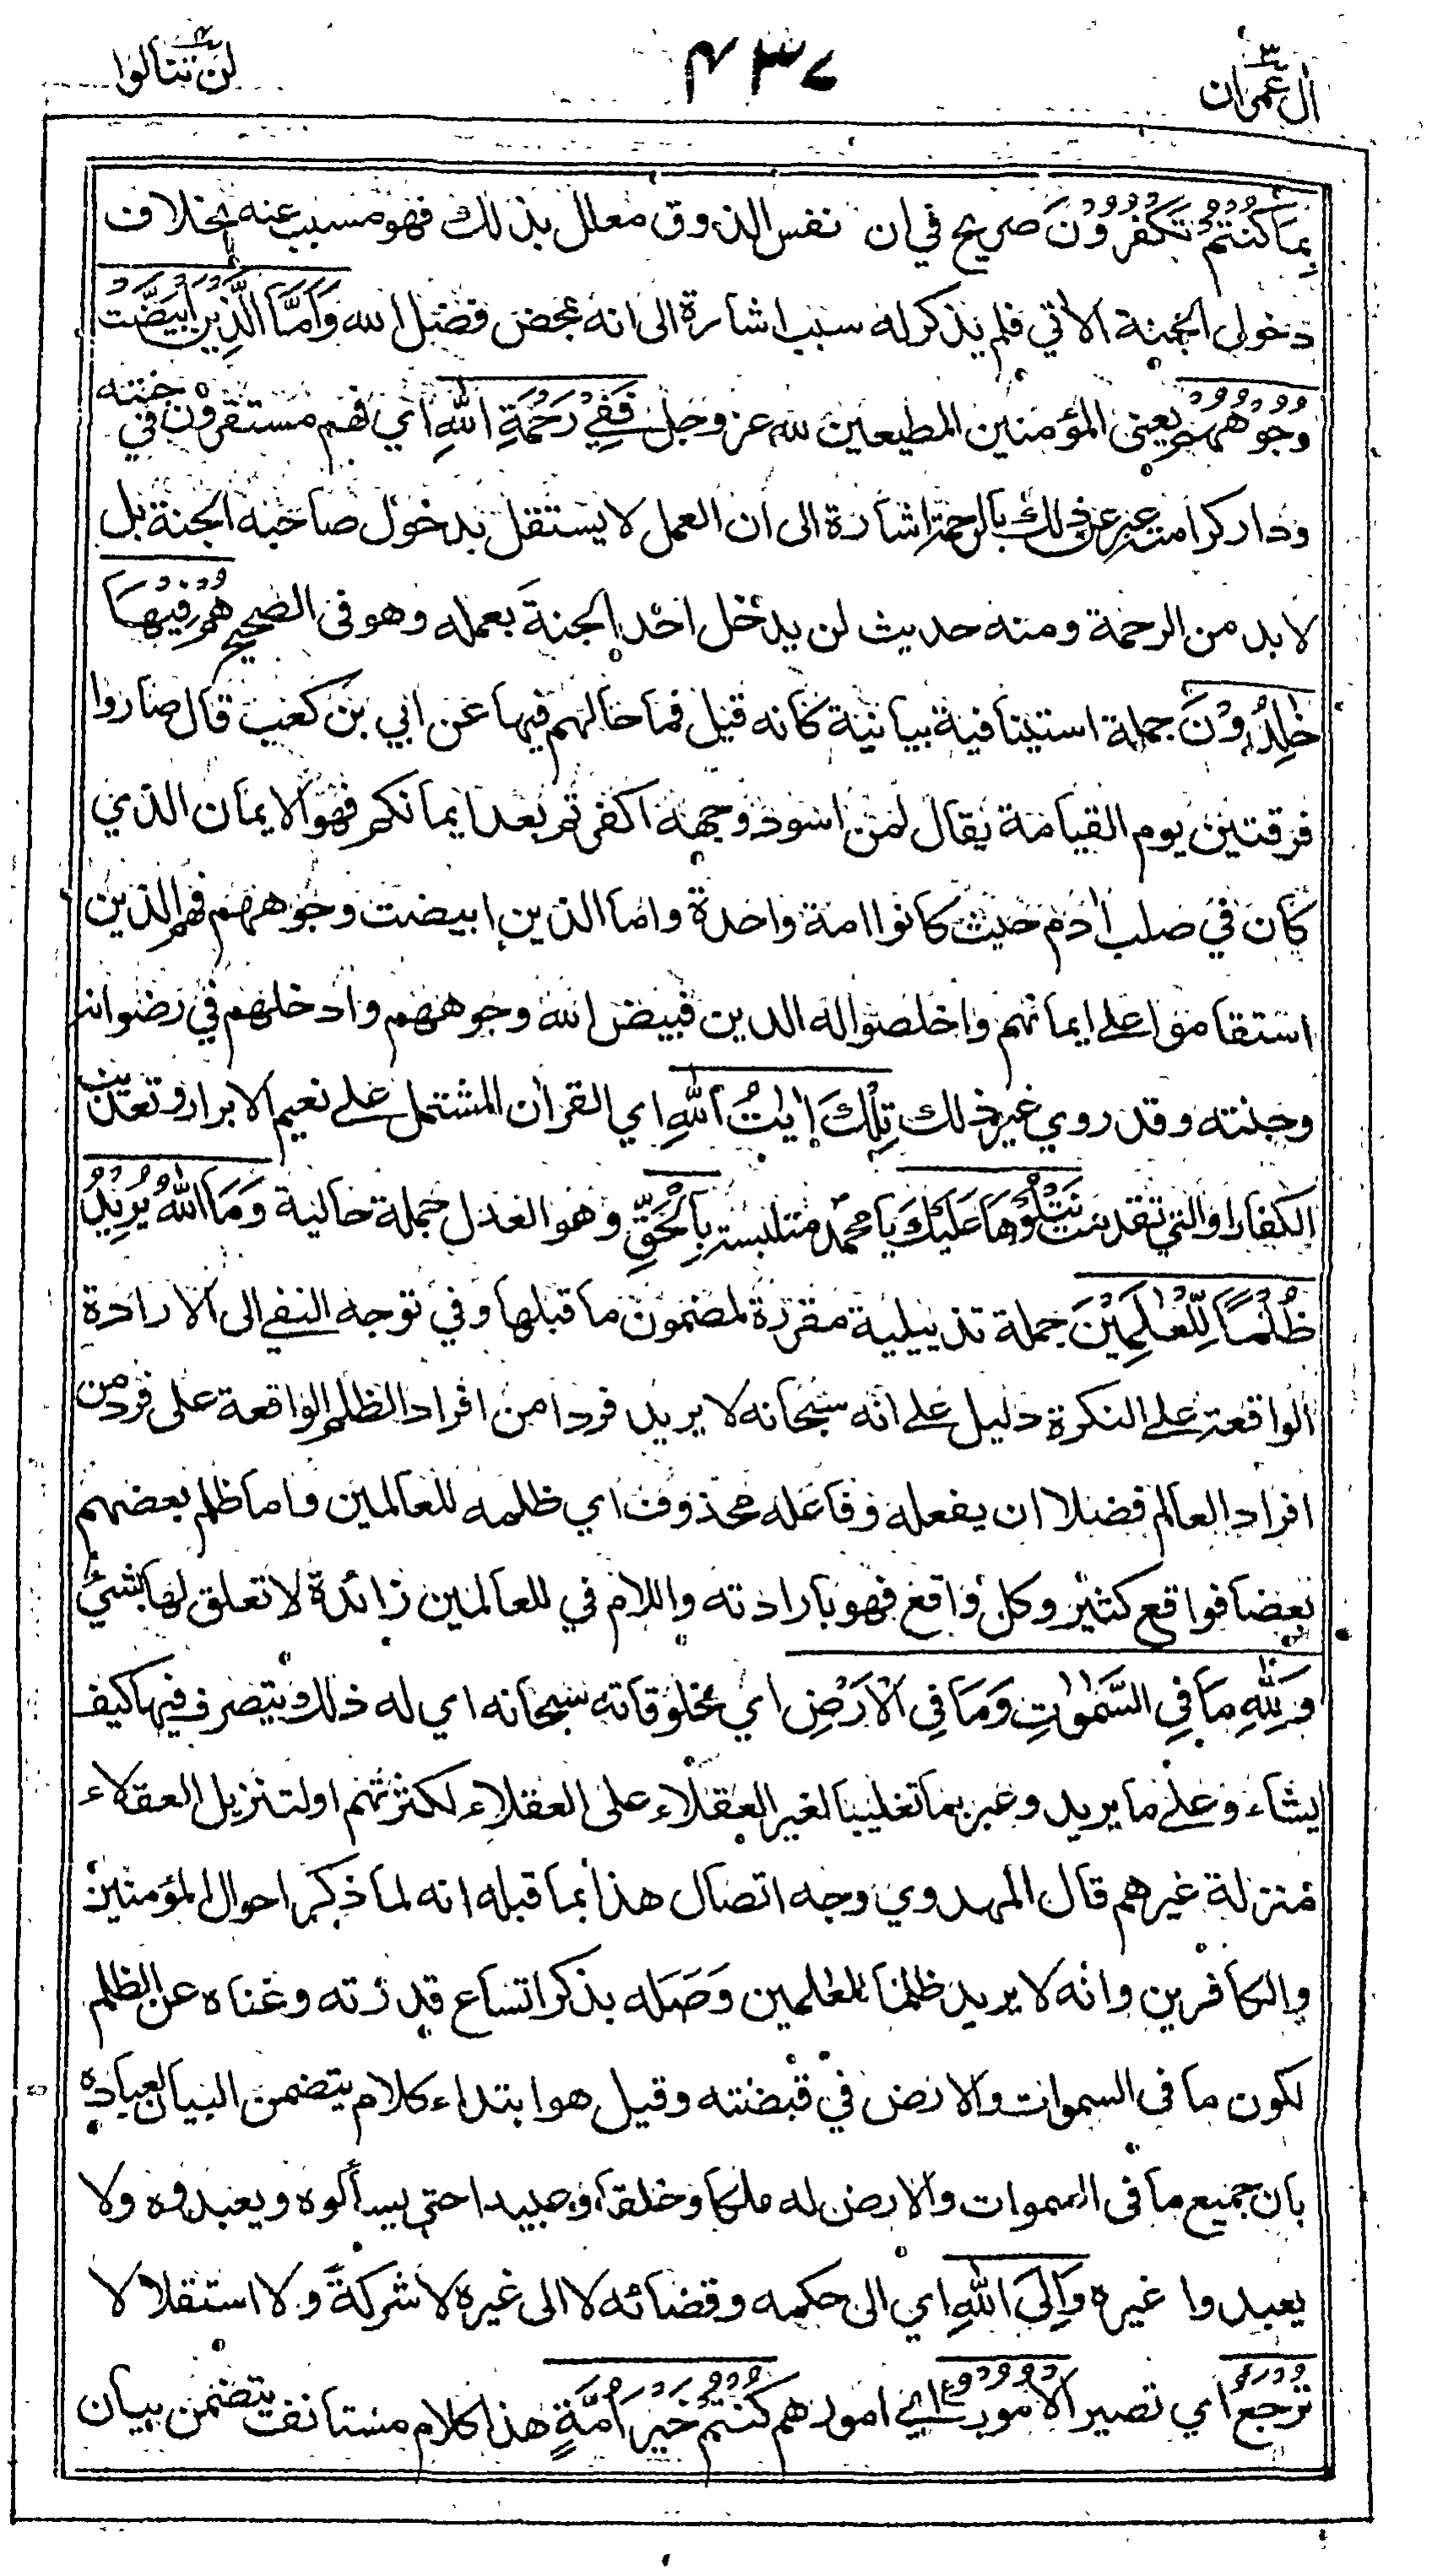 اٰل عمران ٣
٤٣٧
لن تنالوا ٤
بِمَا كُنْتُمْ تَكْفُرُوْنَ صريح في ان نفس الذوق معلل بذلك فهو مسبب عنه بخلاف
دخول الجنة الاٰتي فلم يذكر له سببا اشارة الى انه بمحض فضل الله وَاَمَّا الَّذِيْنَ ابْيَضَّتْ
وُجُوْهُهُمْ يعني المؤمنين المطيعين لله عز وجل فَفِيْ رَحْمَةِ اللهِ اي فهم مستقرون في جنته
ودار كرامته عبر عن ذلك بالرحمة اشارة الى ان العمل لا يستقل بدخول صاحبه الجنة بل
لا بد من الرحمة ومنه حديث لن يدخل احد الجنة بعمله وهو في الصحيح هُمْ فِيْهَا
خٰلِدُوْنَ جملة استينافية بيانية كانه قيل فما حالهم فيها عن ابي بن كعب قال صاروا
فرقتين يوم القيامة يقال لمن اسود وجهه اكفرتم بعد ايمانكم فهو الايمان الذي
كان في صلب اٰدم حيث كانوا امة واحدة واما الذين ابيضت وجوههم فهم الذين
استقاموا على ايمانهم واخلصوا له الدين فبيض الله وجوههم وادخلهم في رضوانه
وجنته وقد روي غير ذلك تِلْكَ اٰيٰتُ اللهِ اي القراٰن المشتمل على نعيم الابرار وتعذيب
الكفار او التي تقدمت نَتْلُوْهَا عَلَيْكَ يا محمد متلبسة بِالْحَقِّ وهو العدل جملة حالية وَمَا اللهُ يُرِيْدُ
ظُلْمًا لِّلْعٰلَمِيْنَ جملة تذييلية مقررة لمضمون ما قبلها وفي توجه النفي الى الارادة
الواقعة على النكرة دليل على انه سبحانه لا يريد فردا من افراد الظلم الواقعة على فرد من
افراد العالم فضلا ان يفعله وفاعله محذوف اي ظلمه للعالمين واما ظلم بعضهم
بعضا فواقع كثير وكل واقع فهو بارادته واللام في للعالمين زائدة لا تعلق لها بشيء
وَلِلّٰهِ مَا فِي السَّمٰوٰتِ وَمَا فِي الْاَرْضِ اي مخلوقاته سبحانه اي له ذلك يتصرف فيها كيف
يشاء وعلى ما يريد وعبر بما تغليبا لغير العقلاء على العقلاء لكثرتهم او لتنزيل العقلاء
منزلة غيرهم قال المهدوي وجه اتصال هذا بما قبله انه لما ذكر احوال المؤمنين
والكافرين وانه لا يريد ظلما للعلمين وَصَلَه بذكر اتساع قدرته وغناه عن الظلم
لكون ما في السموات والارض في قبضته وقيل هو ابتداء كلام يتضمن البيان لعباده
بان جميع ما في السموات والارض له ملكا وخلقا وعبيدا حتى يسألوه ويعبدوه ولا
يعبدوا غيره وَاِلَى اللهِ اي الى حكمه وقضائه لا الى غيره لا شركة ولا استقلالا
تُرْجَعُ اي تصير الْاُمُوْرُ اي امورهم كُنْتُمْ خَيْرَ اُمَّةٍ هذا كلام مستانف يتضمن بيان